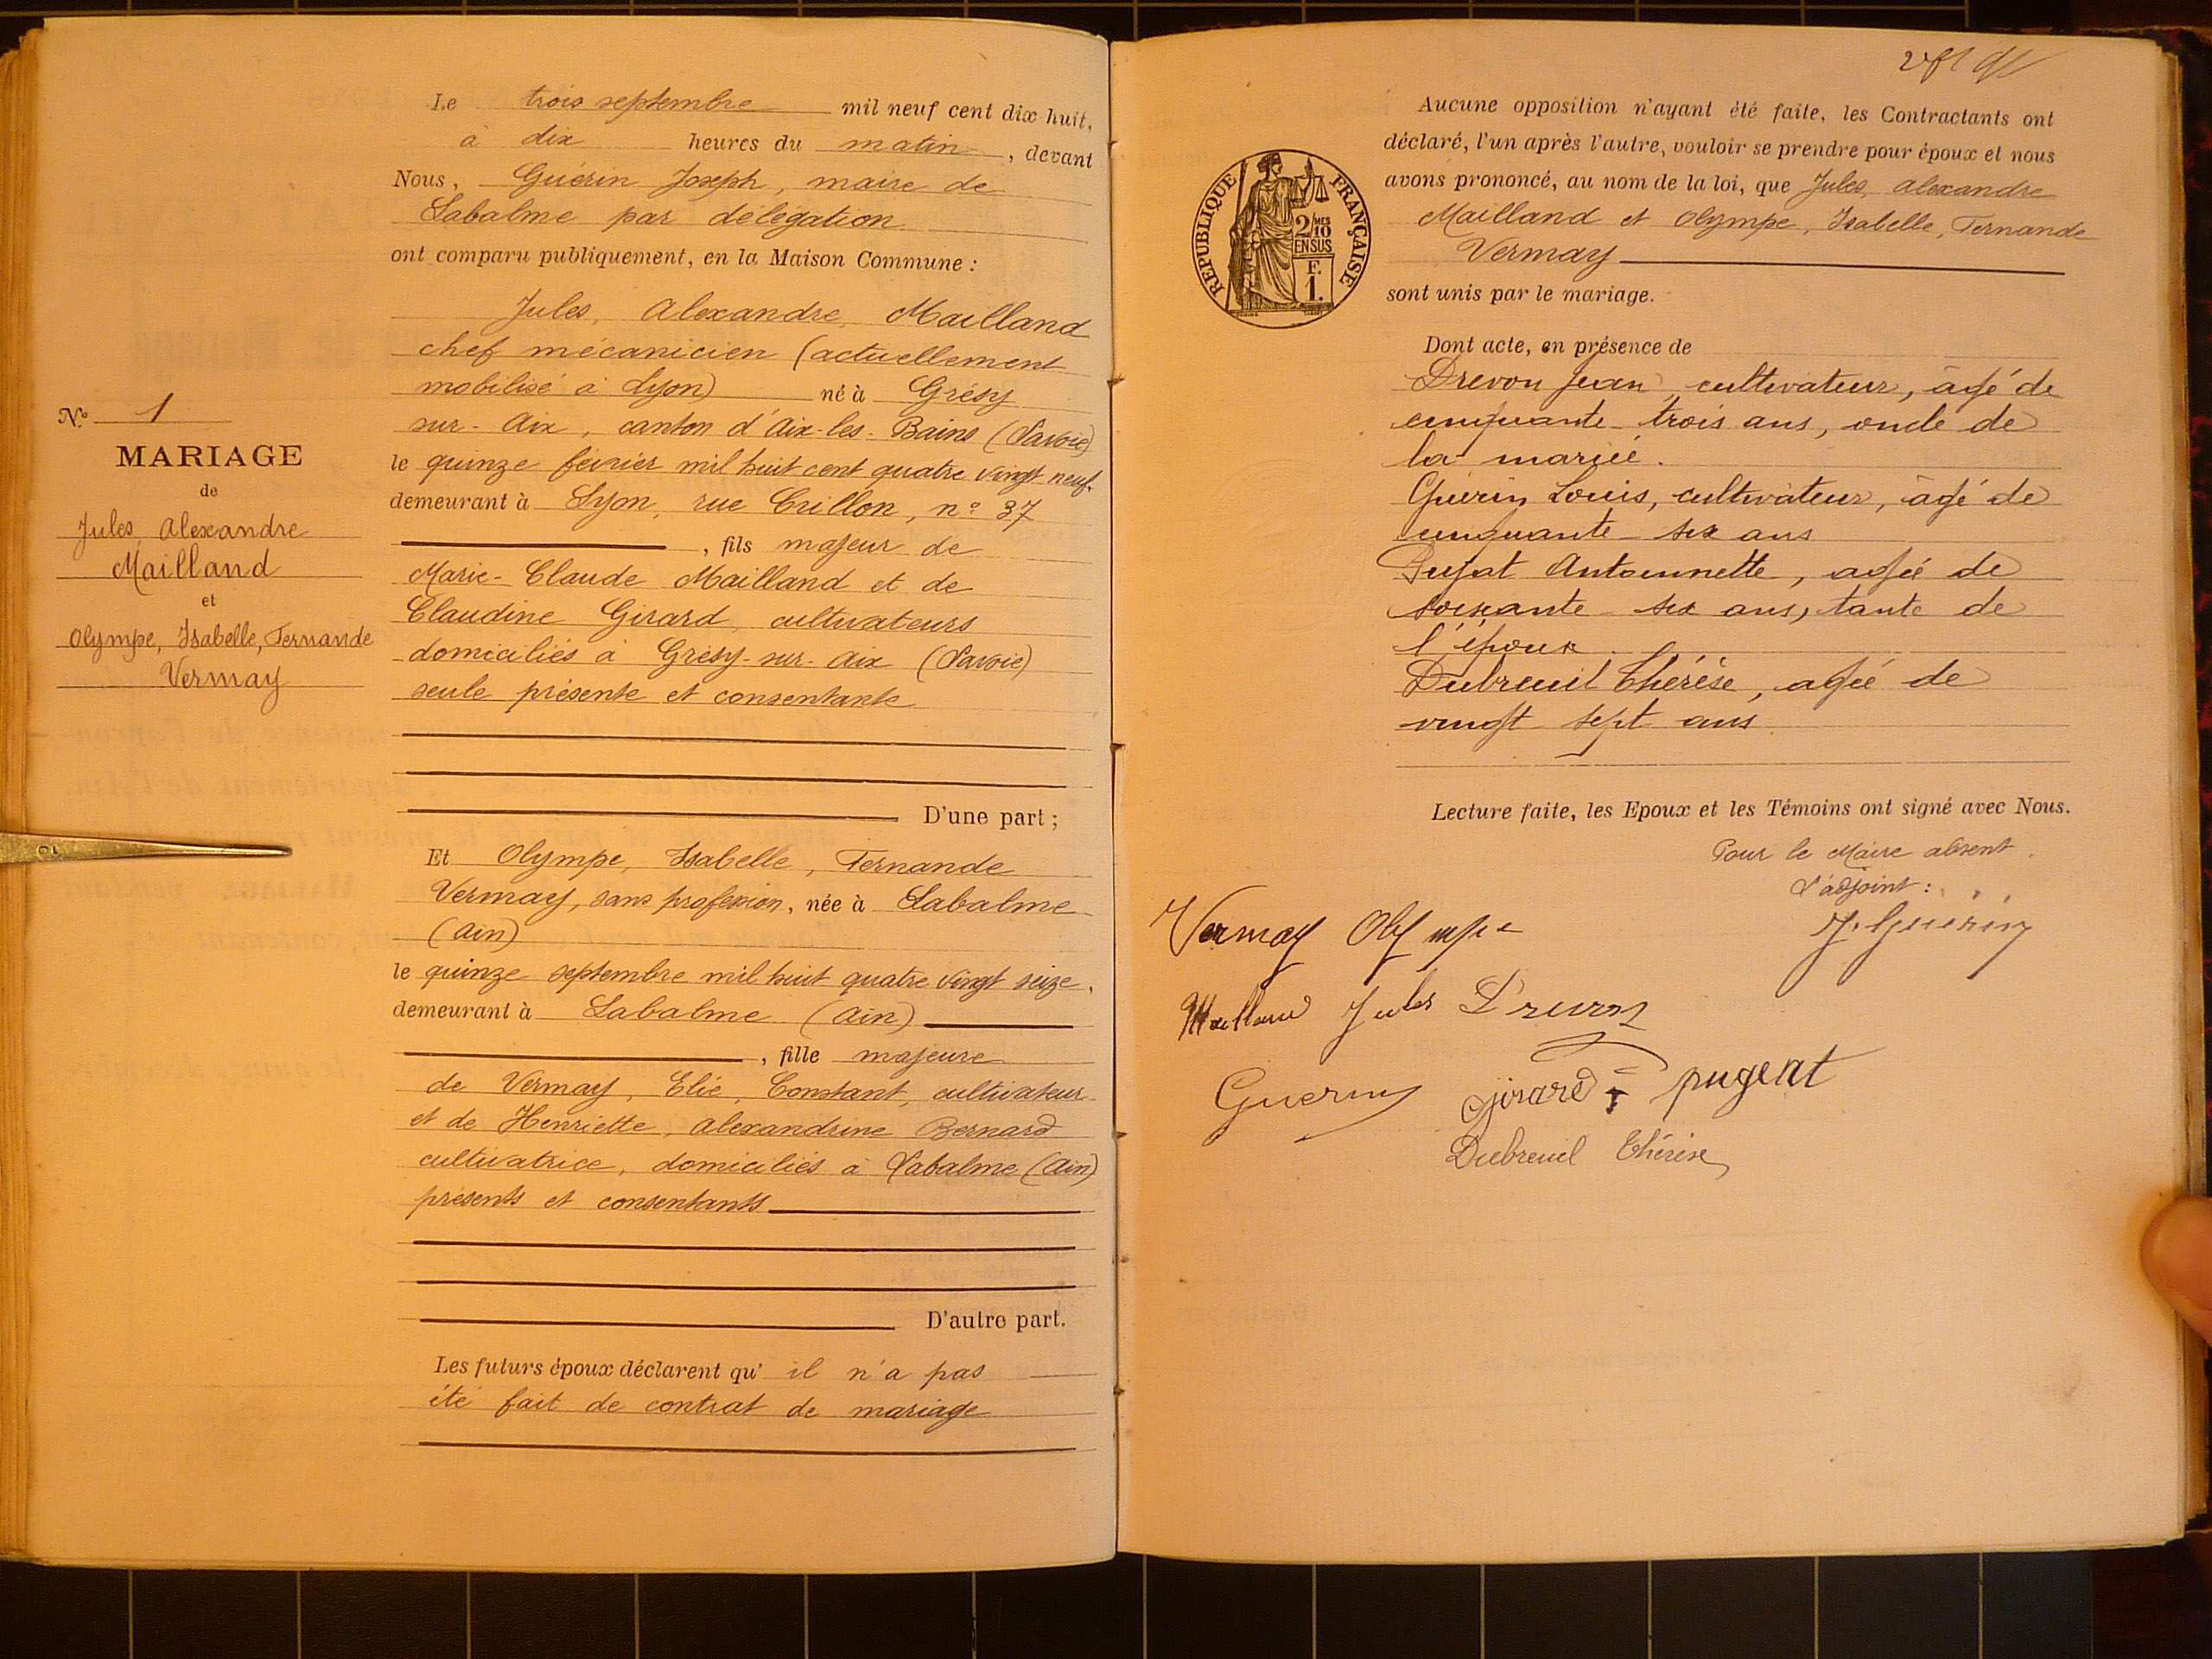 N° 1
MARIAGE
de
Jules, Alexandre
Mailland
et
Olympe, Isabelle, Fernande
Vermay
Le trois septembre mil neuf cent dix huit,
à dix heures du matin, devant
Nous, Guérin Joseph, maire de
Labalme par délégation
ont comparu publiquement, en la Maison Commune :
Jules, Alexandre Mailland
chef mécanicien (actuellement
mobilisé à Lyon) né à Grésy
sur-Aix, canton d'Aix-les-Bains (Savoie)
le quinze février mil huit cent quatre vingt neuf,
demeurant à Lyon, rue Crillon, n° 37
, fils majeur de
Marie-Claude Mailland et de
Claudine Girard, cultivateurs
domiciliés à Grésy-sur-Aix (Savoie)
seule présente et consentante
D'une part ;
Et Olympe, Isabelle, Fernande
Vermay, sans profession, née à Labalme
(Ain)
le quinze septembre mil huit quatre vingt seize,
demeurant à Labalme (Ain)
, fille majeure
de Vermay, Elie, Constant, cultivateur
et de Henriette, Alexandrine Bernard
cultivatrice, domiciliés à Labalme (Ain)
présents et consentants
D'autre part.
Les futurs époux déclarent qu' il n'a pas
été fait de contrat de mariage
RÉPUBLIQUE FRANÇAISE
2/10 MES
EN SUS
F.
1.
Aucune opposition n'ayant été faite, les Contractants ont
déclaré, l'un après l'autre, vouloir se prendre pour époux et nous
avons prononcé, au nom de la loi, que Jules, Alexandre
Mailland et Olympe, Isabelle, Fernande
Vermay
sont unis par le mariage.
Dont acte, en présence de
Drevon Jean, cultivateur, âgé de
cinquante-trois ans, oncle de
la mariée.
Guérin Louis, cultivateur, âgé de
cinquante-six ans
Pujat Antoinnette, agée de
soixante-six ans, tante de
l'époux.
Dubreuil Thérèse, agée de
vingt sept ans
Lecture faite, les Epoux et les Témoins ont signé avec Nous.
Pour le Maire absent.
L'adjoint :
J. Guérin
Vermay Olympe
Mailland Jules Drevon
Guerin Girard pugeat
Dubreuil Thérèse